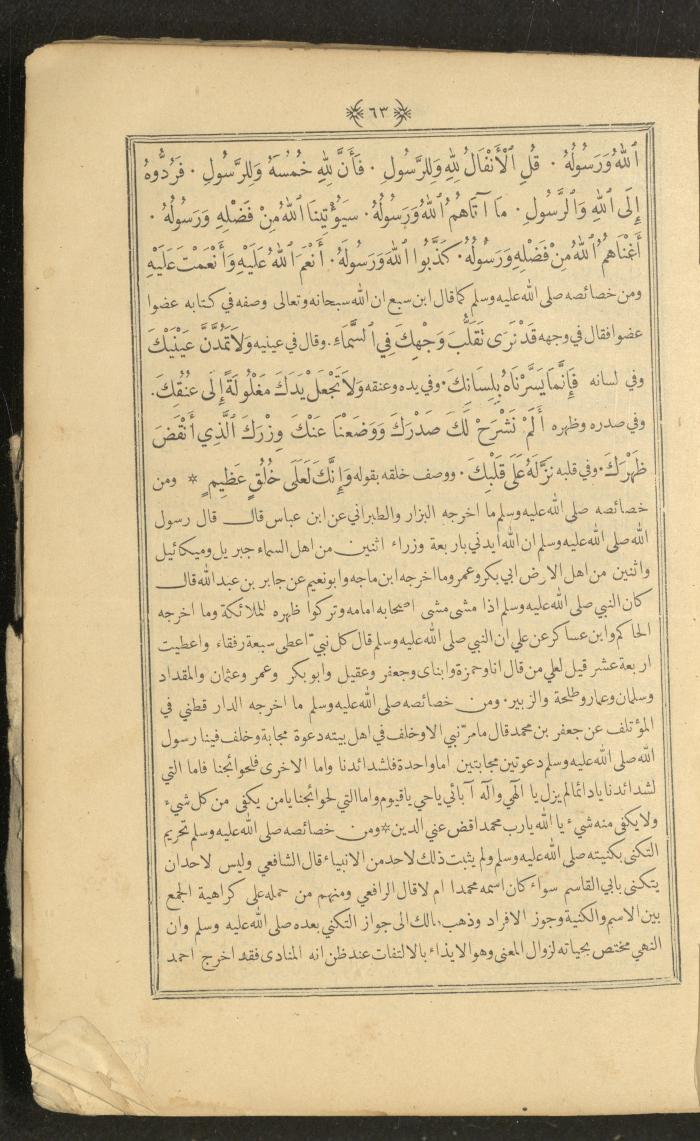 ٦٣
ٱللّٰهُ وَرَسُولُهُ . قُلِ ٱلْأَنْفَالُ لِلّٰهِ وَلِلرَّسُولِ . فَأَنَّ لِلّٰهِ خُمُسَهُ وَلِلرَّسُولِ . فَرُدُّوهُ
إِلَى ٱللّٰهِ وَٱلرَّسُولِ . مَا آتَاهُمُ ٱللّٰهُ وَرَسُولُهُ . سَيُؤْتِينَا ٱللّٰهُ مِنْ فَضْلِهِ وَرَسُولُهُ .
أَغْنَاهُمُ ٱللّٰهُ مِنْ فَضْلِهِ وَرَسُولُهُ . كَذَّبُوا ٱللّٰهَ وَرَسُولَهُ . أَنْعَمَ ٱللّٰهُ عَلَيْهِ وَأَنْعَمْتَ عَلَيْهِ
ومن خصائصه صلى الله عليه وسلم كما قال ابن سبع ان الله سبحانه وتعالى وصفه في كتابه عضوا
عضوا فقال في وجهه قَدْ نَرَى تَقَلُّبَ وَجْهِكَ فِي ٱلسَّمَاءِ . وقال في عينيه وَلَا تَمُدَّنَّ عَيْنَيْكَ
وفي لسانه فَإِنَّمَا يَسَّرْنَاهُ بِلِسَانِكَ . وفي يده وعنقه وَلَا تَجْعَلْ يَدَكَ مَغْلُولَةً إِلَى عُنُقِكَ .
وفي صدره وظهره أَلَمْ نَشْرَحْ لَكَ صَدْرَكَ وَوَضَعْنَا عَنْكَ وِزْرَكَ ٱلَّذِي أَنْقَضَ
ظَهْرَكَ . وفي قلبه نَزَّلَهُ عَلَى قَلْبِكَ . ووصف خلقه بقوله وَإِنَّكَ لَعَلَى خُلُقٍ عَظِيمٍ * ومن
خصائصه صلى الله عليه وسلم ما اخرجه البزار والطبراني عن ابن عباس قال قال رسول
الله صلى الله عليه وسلم ان الله ايدني باربعة وزراء اثنين من اهل السماء جبريل وميكائيل
واثنين من اهل الارض ابي بكر وعمر وما اخرجه ابن ماجه وابو نعيم عن جابر بن عبد الله قال
كان النبي صلى الله عليه وسلم اذا مشى مشى اصحابه امامه وتركوا ظهره للملائكة وما اخرجه
الحاكم وابن عساكر عن علي ان النبي صلى الله عليه وسلم قال كل نبيّ اعطى سبعة رفقاء واعطيت
اربعة عشر قيل لعلي من قال انا وحمزة وابناى وجعفر وعقيل وابو بكر وعمر وعثمان والمقداد
وسلمان وعمار وطلحة والزبير . ومن خصائصه صلى الله عليه وسلم ما اخرجه الدار قطني في
المؤتلف عن جعفر بن محمد قال ما مرّ نبي الا وخلف في اهل بيته دعوة مجابة وخلف فينا رسول
الله صلى الله عليه وسلم دعوتين مجابتين اما واحدة فلشدائدنا واما الاخرى فلحوائجنا فاما التي
لشدائدنا يا دائما لم يزل يا الٓهي وآله آبائي يا حي يا قيوم واما التي لحوائجنا يا من يكفى من كل شيء
ولا يكفى منه شيء يا الله يا رب محمد اقض عني الدين * ومن خصائصه صلى الله عليه وسلم تحريم
التكنى بكنيته صلى الله عليه وسلم ولم يثبت ذلك لاحد من الانبياء قال الشافعي وليس لاحد ان
يتكنى بابي القاسم سواء كان اسمه محمدا ام لا قال الرافعي ومنهم من حمله على كراهية الجمع
بين الاسم والكنية وجوز الافراد وذهب مالك الى جواز التكني بعده صلى الله عليه وسلم وان
النهي مختص بحياته لزوال المعنى وهو الايذاء بالالتفات عند ظن انه المنادى فقد اخرج احمد